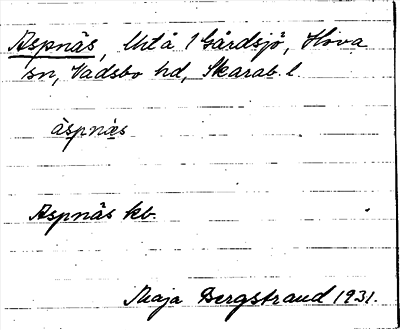 Aspnäs, Utå 1 Gårdsjö, Hova
sn, Vadsbo hd, Skarab. l.
àspnäs
Aspnäs kb.
Maja Bergstrand 1931.